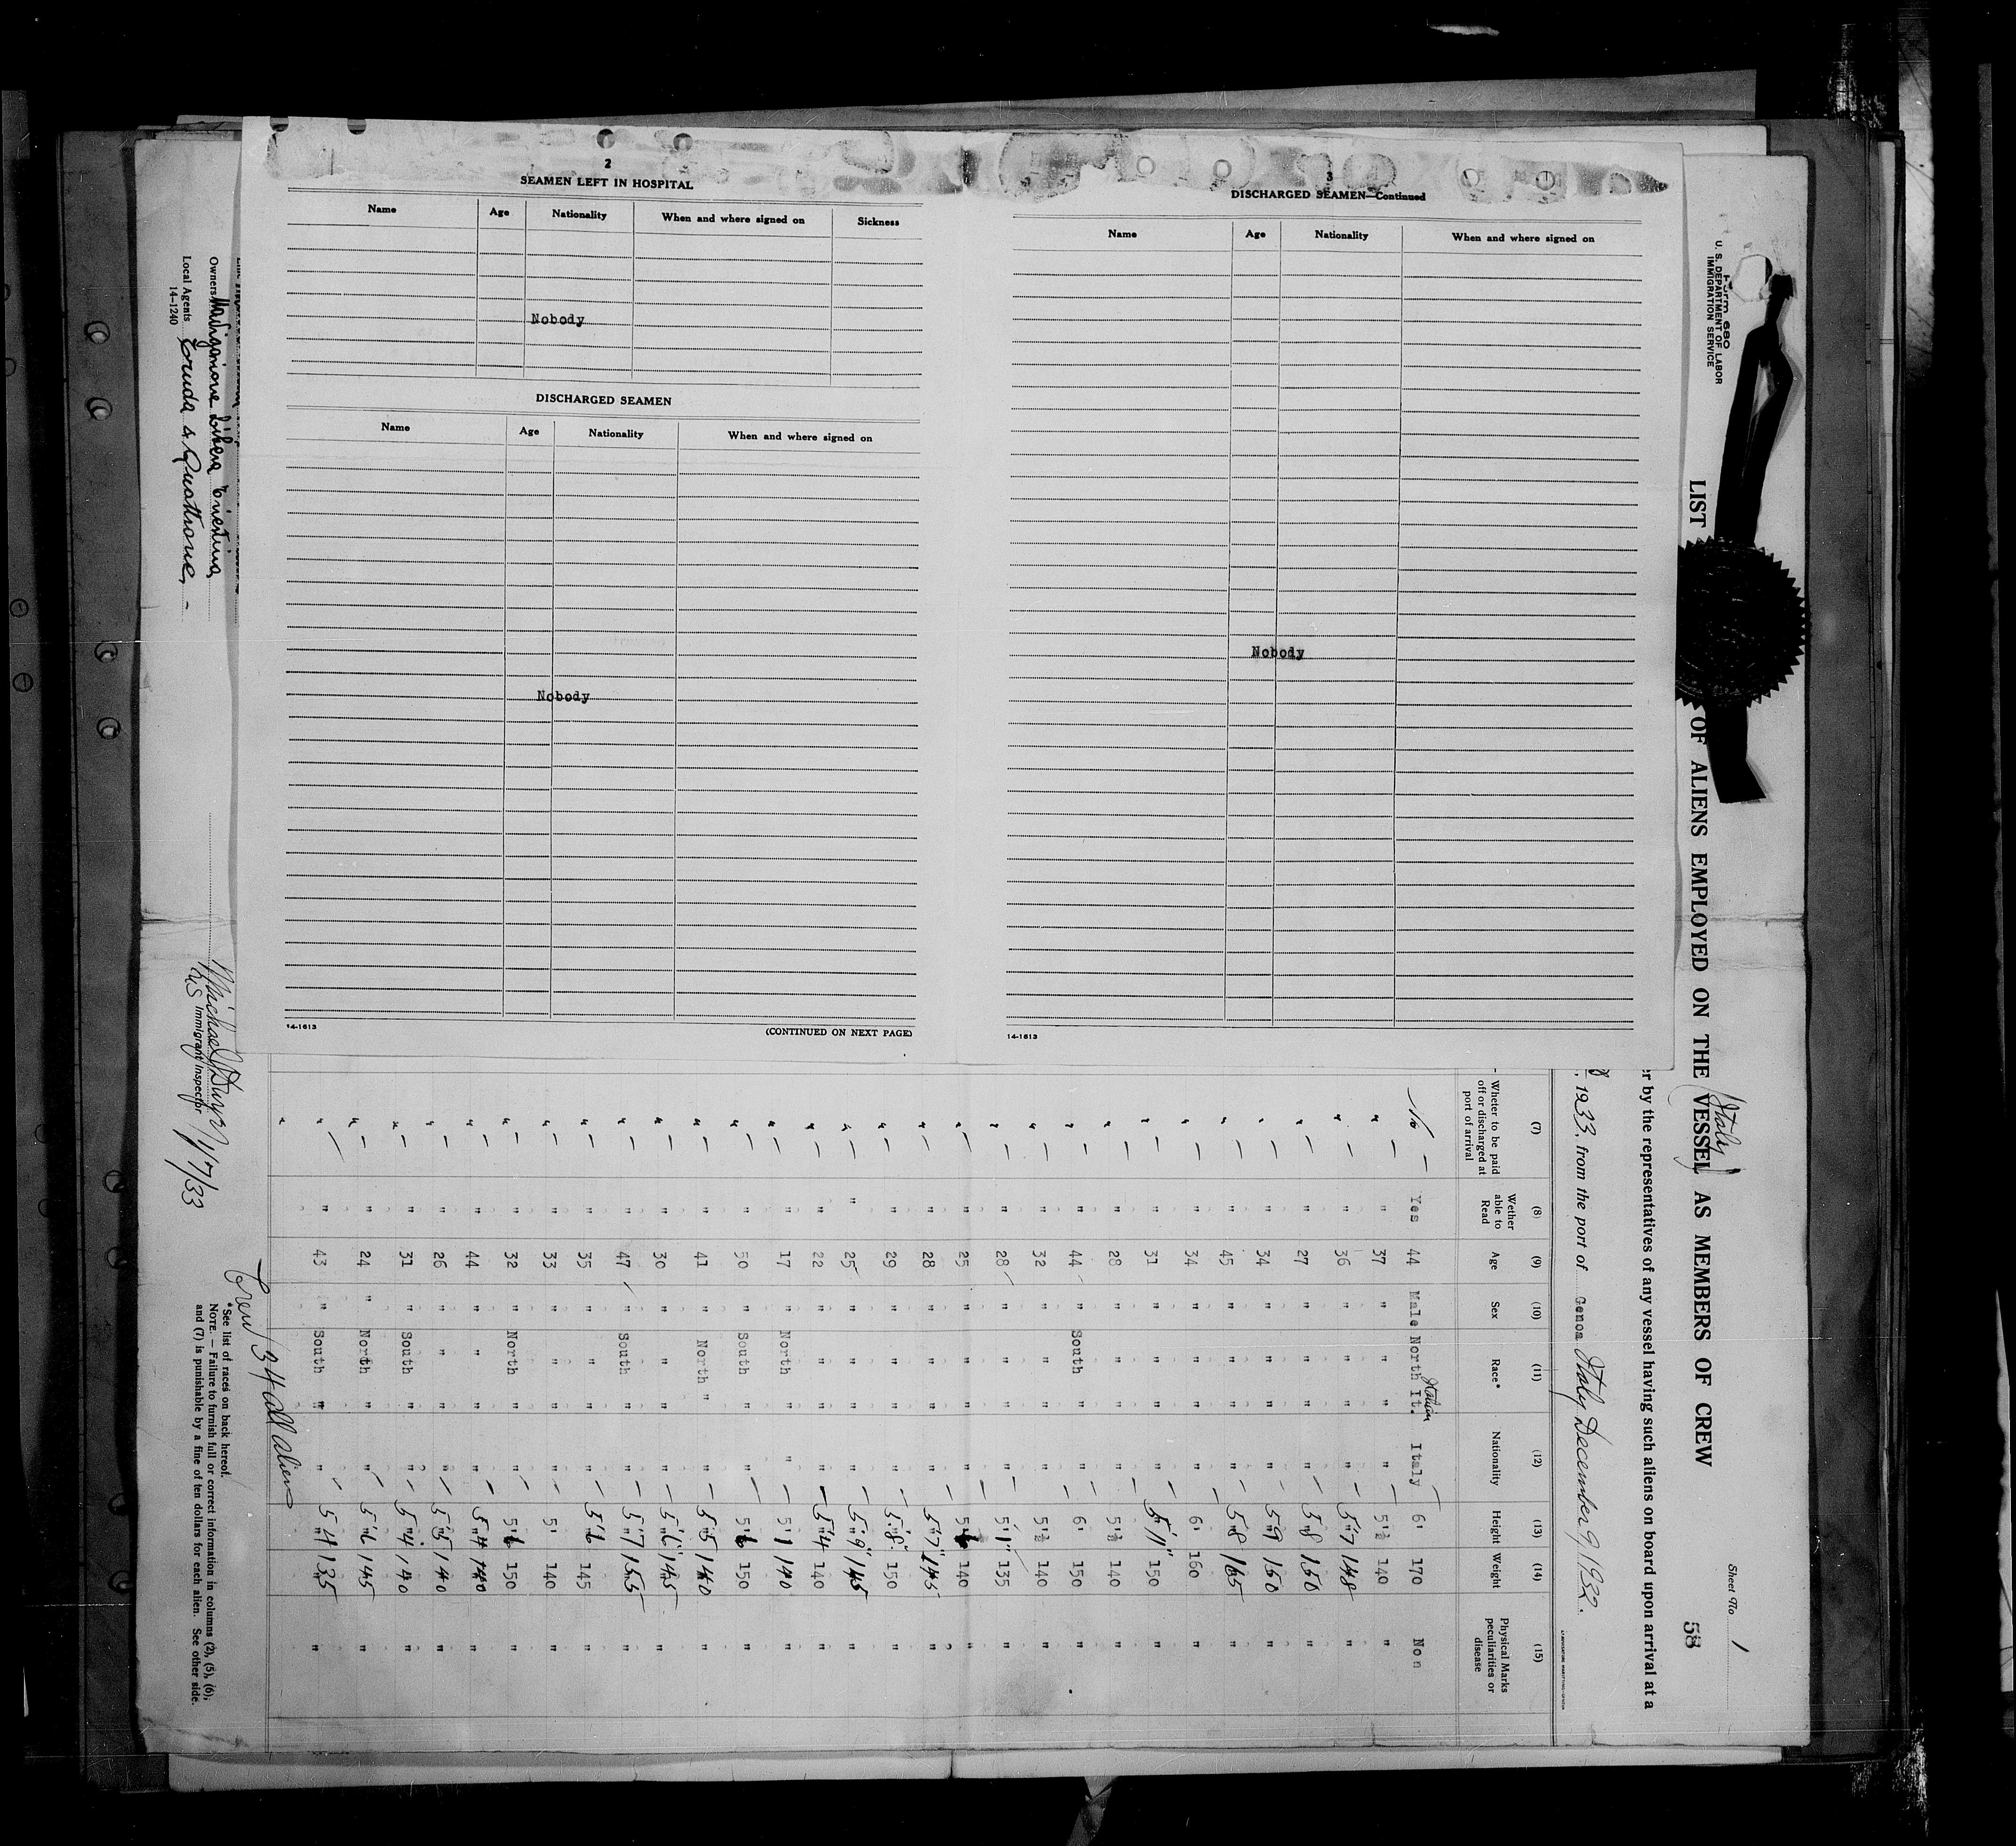 2
SEAMEN LEFT IN HOSPITAL
Name Age Nationality When and where signed on Sickness
Nobody
DISCHARGED SEAMEN
Name Age Nationality When and where signed on
Nobody
14-1613 (CONTINUED ON NEXT PAGE)
3
DISCHARGED SEAMEN—Continued
Name Age Nationality When and where signed on
Nobody
14-1613
Form 680
U. S. DEPARTMENT OF LABOR
IMMIGRATION SERVICE
Sheet No. 1
58
(Italy)
LIST OF ALIENS EMPLOYED ON THE VESSEL AS MEMBERS OF CREW
er by the representatives of any vessel having such aliens on board upon arrival at a
, 1933, from the port of Genoa Italy December 9, 1932.
(7) (8) (9) (10) (11) (12) (13) (14) (15)
- Wheter to be paid off or discharged at port of arrival
Wether able to Read
Age
Sex
Race*
Nationality
Height
Weight
Physical Marks peculiarities or disease
No — Yes 44 Male North It. Italian Italy — 6' 170 Non
" — " 37 " " " " — 5'½ 140 "
" — " 36 " " " " — 5"7 148 "
" — " 27 " " " " — 5"8 150 "
" — " 34 " " " " — 5"9 150 "
" — " 45 " " " " — 5"8 165 "
" — " 34 " " " " — 6' 160 "
" — " 31 " " " " — 5'11" 150 "
" — " 28 " " " " — 5'½ 140 "
" — " 44 " South " " — 6' 150 "
" — " 32 " " " " — 5'½ 140 "
" — " 28 " " " " — 5'1" 135 "
" — " 25 " " " " — 140 "
" — " 28 " " " " — 5"7" 145 "
" — " 29 " " " " — 5'8" 150 "
" — " 25 " " " " — 5'9" 145 "
" — " 22 " " " " — 5"4 140 "
" — " 17 " North " " — 5'1 140 "
" — " 50 " South " " — 150 "
" — " 41 " North " " — 5"5 140 "
" — " 30 " " " " — 5'6" 145 "
" — " 47 " South " " — 5"7 155 "
" — " 35 " " " " — 5'6 145 "
" — " 33 " " " " — 5' 140 "
" — " 32 " North " " — 150 "
" — " 44 " " " " — 5"4 140 "
" — " 26 " " " " — 5"5 140 "
" — " 31 " South " " — 5"4 140 "
" — " 24 " North " " — 5'6 145 "
" — " 43 " South " " — 5"4 135 "
Crew 34 all aliens
*See list of races on back hereof.
NOTE. — Failure to furnish full or correct information in columns (2), (5), (6),
and (7) is punishable by a fine of ten dollars for each alien. See other side.
Owners Navigazione Libera Triestina
Local Agents
14-1240
Michael J
US Immigrant Inspector
1/7/33